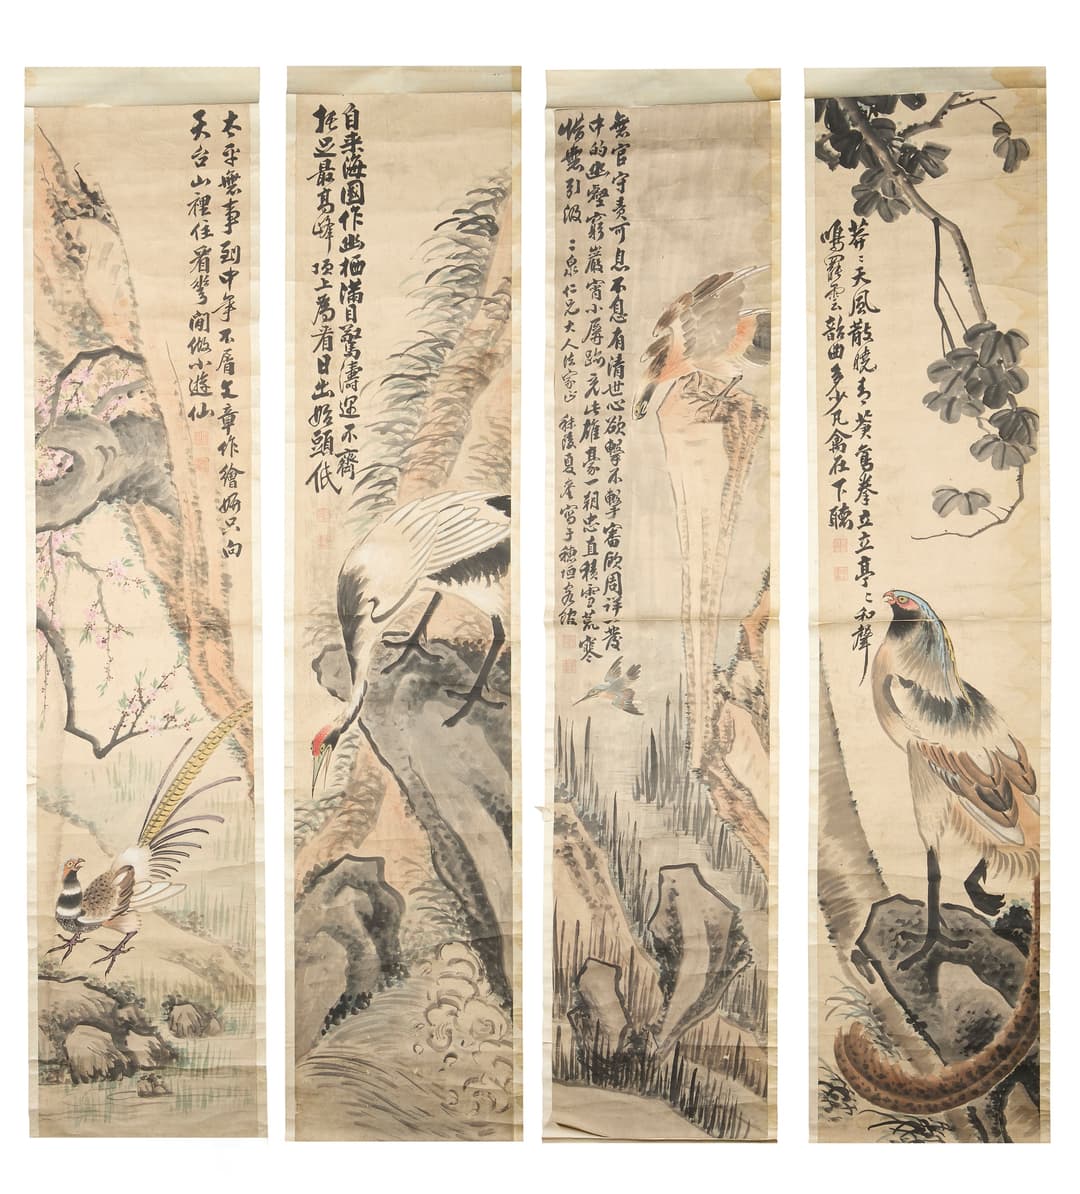 莽〻天風散曉青鸞拳立立亭〻和聲
鳴罷雲韶曲多少凡禽在下聽
無官守責可息不息有清世心欲擊不擊審顧周詳一發
中的幽壑窮巖宵小屏跡充此雄豪一朝忠直積雪荒寒
惜無引汲 二泉仁兄大人法家正 秣陵夏奎寫于穗垣客次
自来海國作幽栖滿目驚濤運不齊
托足最高峰頂上為看日出始頭低
太平無事到中年不屑文章作繪妍只向
天台山裡住看花閒做小遊仙